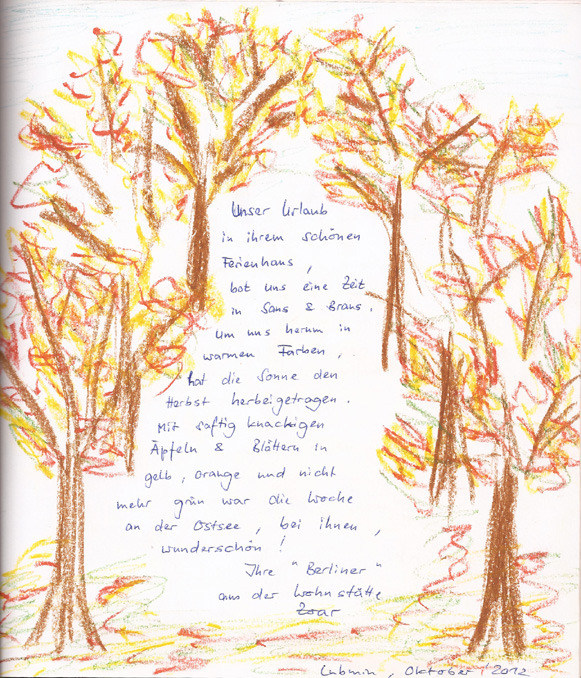 Unser Urlaub
in ihrem schönen
Ferienhaus,
bot uns eine Zeit
in Saus & Braus.
Um uns herum in
warmen Farben,
hat die Sonne den
Herbst herbeigetragen.
Mit saftig knackigen
Äpfeln & Blättern in
gelb, orange und nicht
mehr grün war die Woche
an der Ostsee, bei ihnen,
wunderschön!
Ihre "Berliner"
aus der Wohnstätte
Zoar
Lubmin, Oktober, 2012